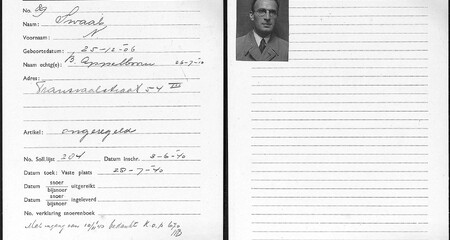 No. 89
Naam: Swaab
Voornaam: N
Geboortedatum: 25-12-'06
Naam echtg(e): B. Appelboom 26-7-10
Adres:
Transvaalstraat 54 III
Artikel: ongeregeld
No. Soll.lijst 204 Datum inschr. 3-6-'40
Datum toek: Vaste plaats 28-7-'40
Datum snoer bijsnoer uitgereikt
Datum snoer bijsnoer ingeleverd
No. verklaring snoerenboek
Met ingang van bedankt